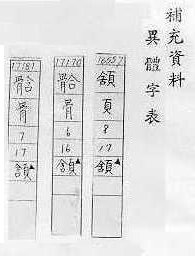 補充資料
異體字表
頁
8
17
頷▲
17170
骨
6
16
頷▲
17181
骨
7
17
頷▲